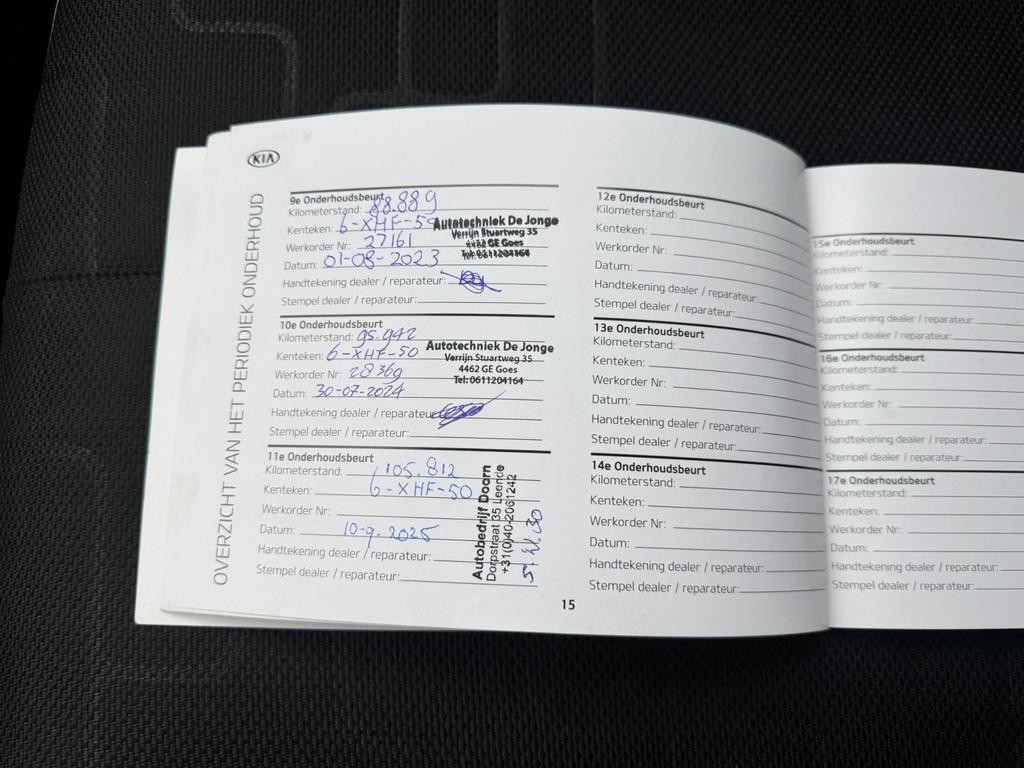 KIA
OVERZICHT VAN HET PERIODIEK ONDERHOUD
9e Onderhoudsbeurt
Kilometerstand: 88.889
Kenteken: 6-XHF-50
Werkorder Nr: 27161
Datum: 01-08-2023
Handtekening dealer / reparateur:
Stempel dealer / reparateur:
Autotechniek De Jonge
Verrijn Stuartweg 35
4462 GE Goes
Tel:0611204164
10e Onderhoudsbeurt
Kilometerstand: 95.942
Kenteken: 6-XHF-50
Werkorder Nr: 28369
Datum: 30-07-2024
Handtekening dealer / reparateur
Stempel dealer / reparateur:
Autotechniek De Jonge
Verrijn Stuartweg 35
4462 GE Goes
Tel:0611204164
11e Onderhoudsbeurt
Kilometerstand: 105.812
Kenteken: 6-XHF-50
Werkorder Nr:
Datum: 10-9-2025
Handtekening dealer / reparateur:
Stempel dealer / reparateur:
Autobedrijf Doorn
Dorpstraat 35 Leende
+31(0)40-2061242
15
12e Onderhoudsbeurt
Kilometerstand:
Kenteken:
Werkorder Nr:
Datum:
Handtekening dealer / reparateur:
Stempel dealer / reparateur:
13e Onderhoudsbeurt
Kilometerstand:
Kenteken:
Werkorder Nr:
Datum:
Handtekening dealer / reparateur:
Stempel dealer / reparateur:
14e Onderhoudsbeurt
Kilometerstand:
Kenteken:
Werkorder Nr:
Datum:
Handtekening dealer / reparateur:
Stempel dealer / reparateur:
15e Onderhoudsbeurt
Kilometerstand:
Kenteken:
Werkorder Nr:
Datum:
Handtekening dealer / reparateur:
Stempel dealer / reparateur:
16e Onderhoudsbeurt
Kilometerstand:
Kenteken:
Werkorder Nr:
Datum:
Handtekening dealer / reparateur:
Stempel dealer / reparateur:
17e Onderhoudsbeurt
Kilometerstand:
Kenteken:
Werkorder Nr:
Datum:
Handtekening dealer / reparateur:
Stempel dealer / reparateur: